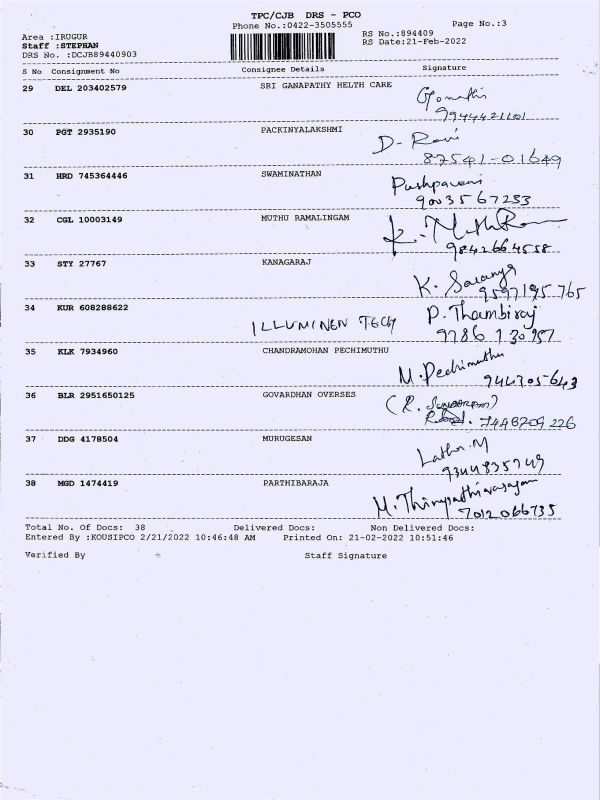 TPC/CJB DRS - PCO
Phone No.:0422-3505555
Page No.:3
Area :IRUGUR
RS No.:894409
Staff :STEPHAN
RS Date:21-Feb-2022
DRS No. :DCJB89440903
S No Consignment No Consignee Details Signature
29 DEL 203402579 SRI GANAPATHY HELTH CARE Gomathi
9944421101
30 PGT 2935190 PACKINYALAKSHMI D- Ravi
87541-01649
31 HRD 745364446 SWAMINATHAN Pushpaveni
9003567233
32 CGL 10003149 MUTHU RAMALINGAM
9842664558
33 STY 27767 KANAGARAJ K. Saranya
9597195765
34 KUR 608288622 ILLUMINEN TECH P. Thambiraj
9786730957
35 KLK 7934960 CHANDRAMOHAN PECHIMUTHU M.Pechimuthu
944305643
36 BLR 2951650125 GOVARDHAN OVERSES
7448709226
37 DDG 4178504 MURUGESAN Latha.M
9344835749
38 MGD 1474419 PARTHIBARAJA
7012066735
Total No. Of Docs: 38 Delivered Docs: Non Delivered Docs:
Entered By :KOUSIPCO 2/21/2022 10:46:48 AM Printed On: 21-02-2022 10:51:46
Verified By Staff Signature